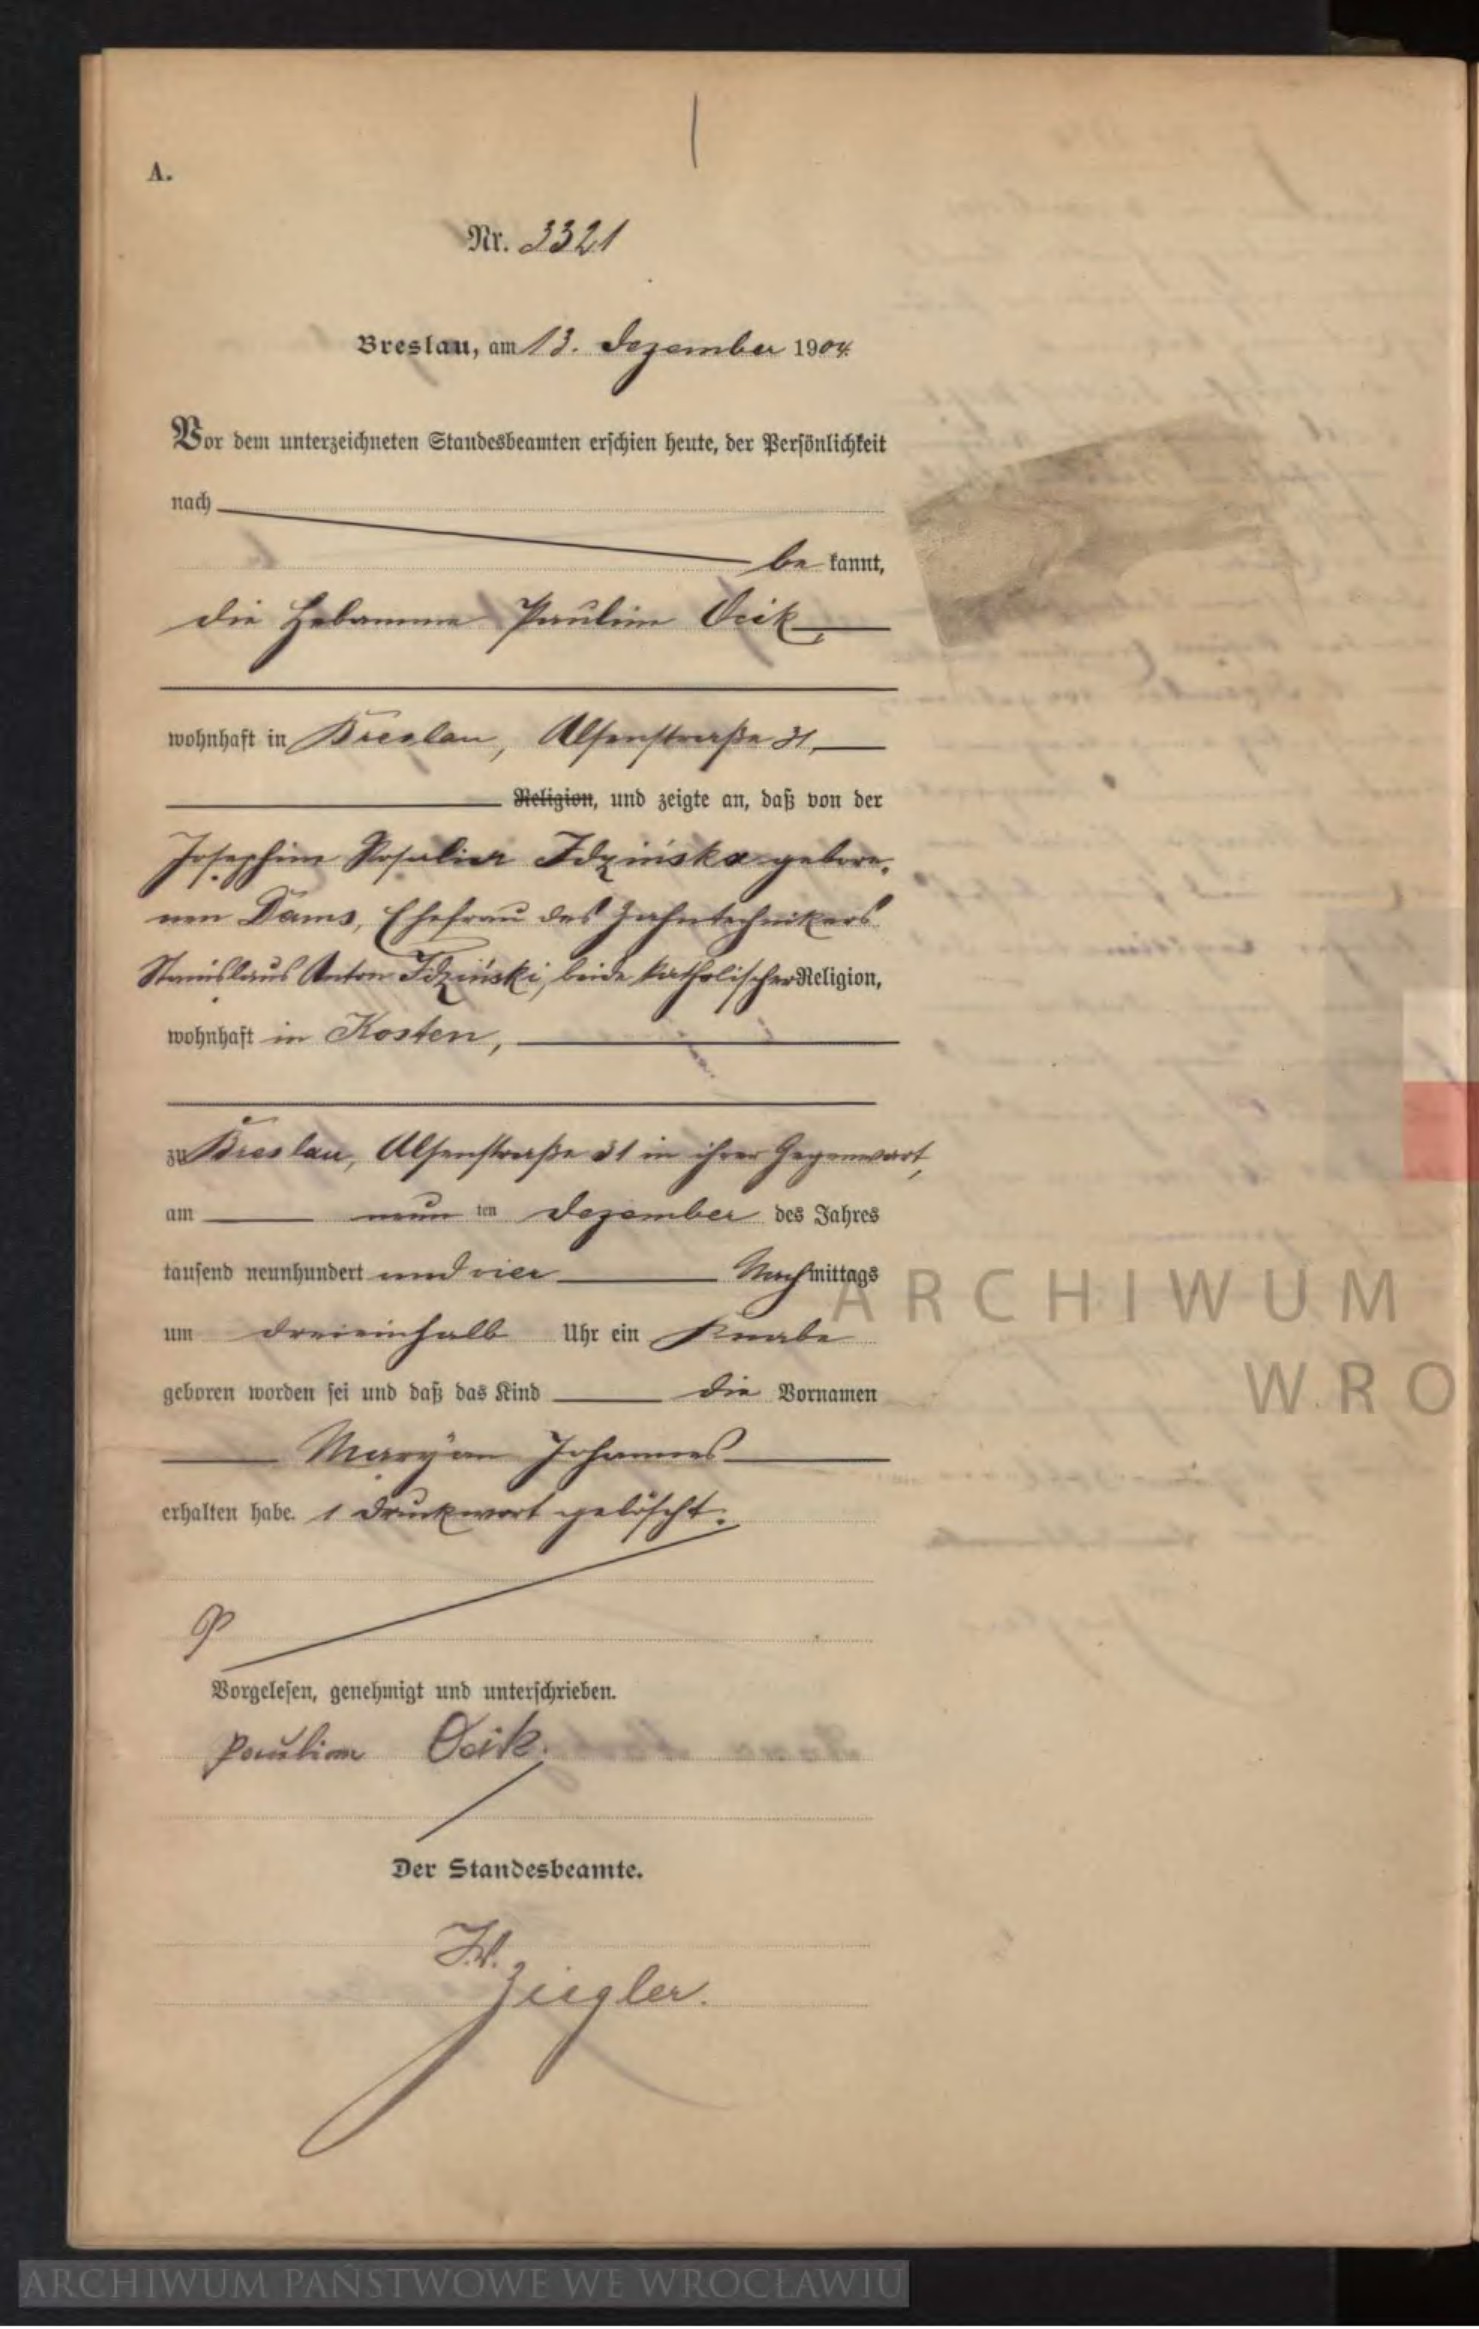 A.
Nr. 3321
Breslau, am 13. Dezember 1904.
Vor dem unterzeichneten Standesbeamten erschien heute, der Persönlichkeit
nach
be kannt,
die Hebamme Pauline Ocik,
wohnhaft in Breslau, Alsenstraße 31,
Religion, und zeigte an, daß von der
Josephine Rosalie Idzińska gebore-
nen Dams, Ehefrau des Zahntechnikers
Stanislaus Anton Idziński, beide katholischer Religion,
wohnhaft in Kosten,
zu Breslau, Alsenstraße 31 in ihrer Gegenwart,
am neun ten Dezember des Jahres
tausend neunhundert und vier Nachmittags
um dreieinhalb Uhr ein Knabe
geboren worden sei und daß das Kind die Vornamen
Maryan Johannes
erhalten habe. 1 Druckwort gelöscht.
Vorgelesen, genehmigt und unterschrieben.
Pauline Ocik.
Der Standesbeamte.
J.V.
Ziegler.
ARCHIWUM
WRO
ARCHIWUM PAŃSTWOWE WE WROCŁAWIU